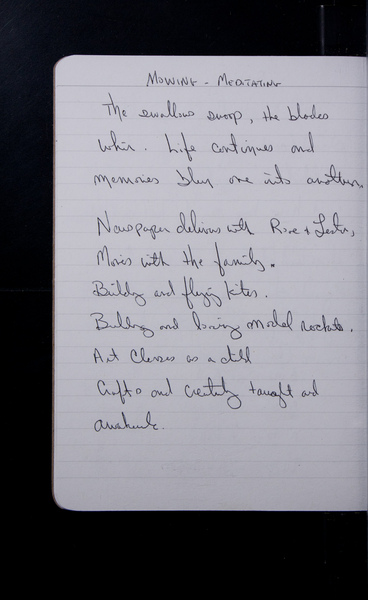 MOWING - MEDITATING
The swallows swoop, the blades
whir. Life continues and
memories blur one into another.
Newspaper delivery with Rose + Lester,
Movies with the family.
Building and flying kites.
Building and losing model rockets.
Art Classes as a child
Crafts and creativity taught and